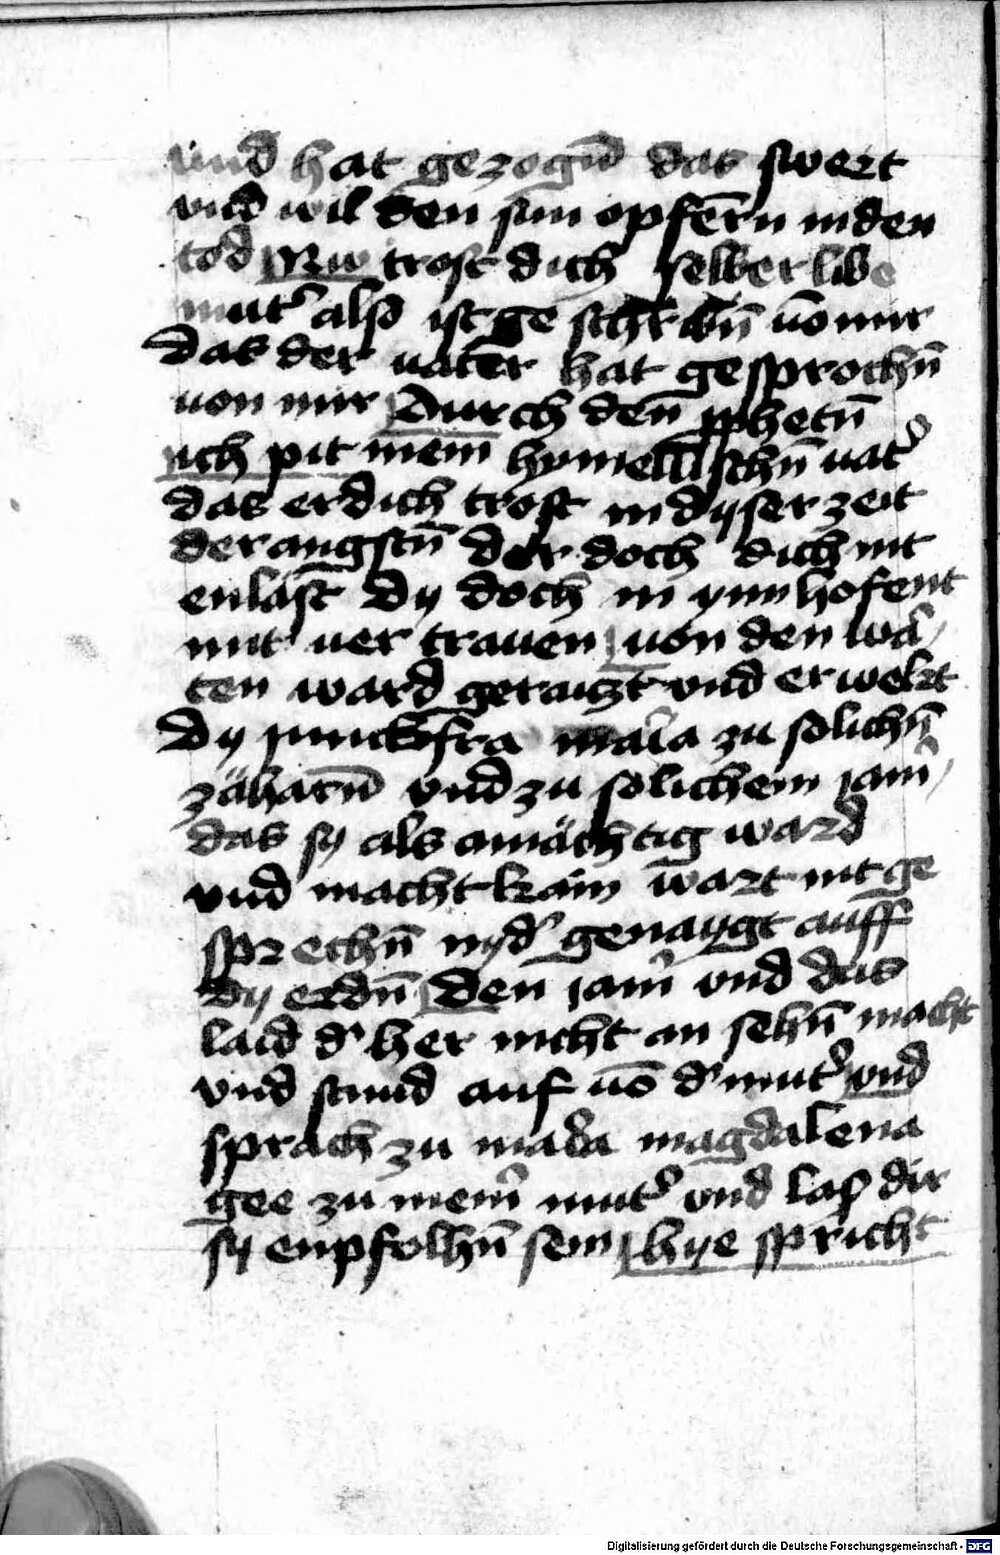 vnd hat gezogn̄ das swert
vnd wil den sun opfern̄ in den
tod Nw trost dich selber libe
mut̓ also ist ge schribn̄ uō mir
das der vater hat gesprochn̄
uon mir Durch den p̱phetn̄
ich pit mein hymellischn̄ uat̓
das er dich trost in dyser zeit
der angstn̄ der doch dich nit
enläst Dy doch in ynn hofent
mit uer trauen uon den wa᷑
ten ward geraiczt vnd er wekt
Dy junckfra mai᷑a zu solichn̄
zähärn̄ vnd zu solichem jam᷑
das sy als amächtig ward
vnd macht kain wart nit ge
sprechn̄ nyd̓ genaygt auff
dy erdn̄ Den jam᷑ vnd das
laid d̓ her nicht an sehn̄ macht
vnd stund auf uō d̓ mut̓ vnd
sprach zu maria magdalena
gee zu mein᷑ mut̓ vnd laß dir
sy enpfolhn̄ sein hye spricht
Digitalisierung gefördert durch die Deutsche Forschungsgemeinschaft - DFG